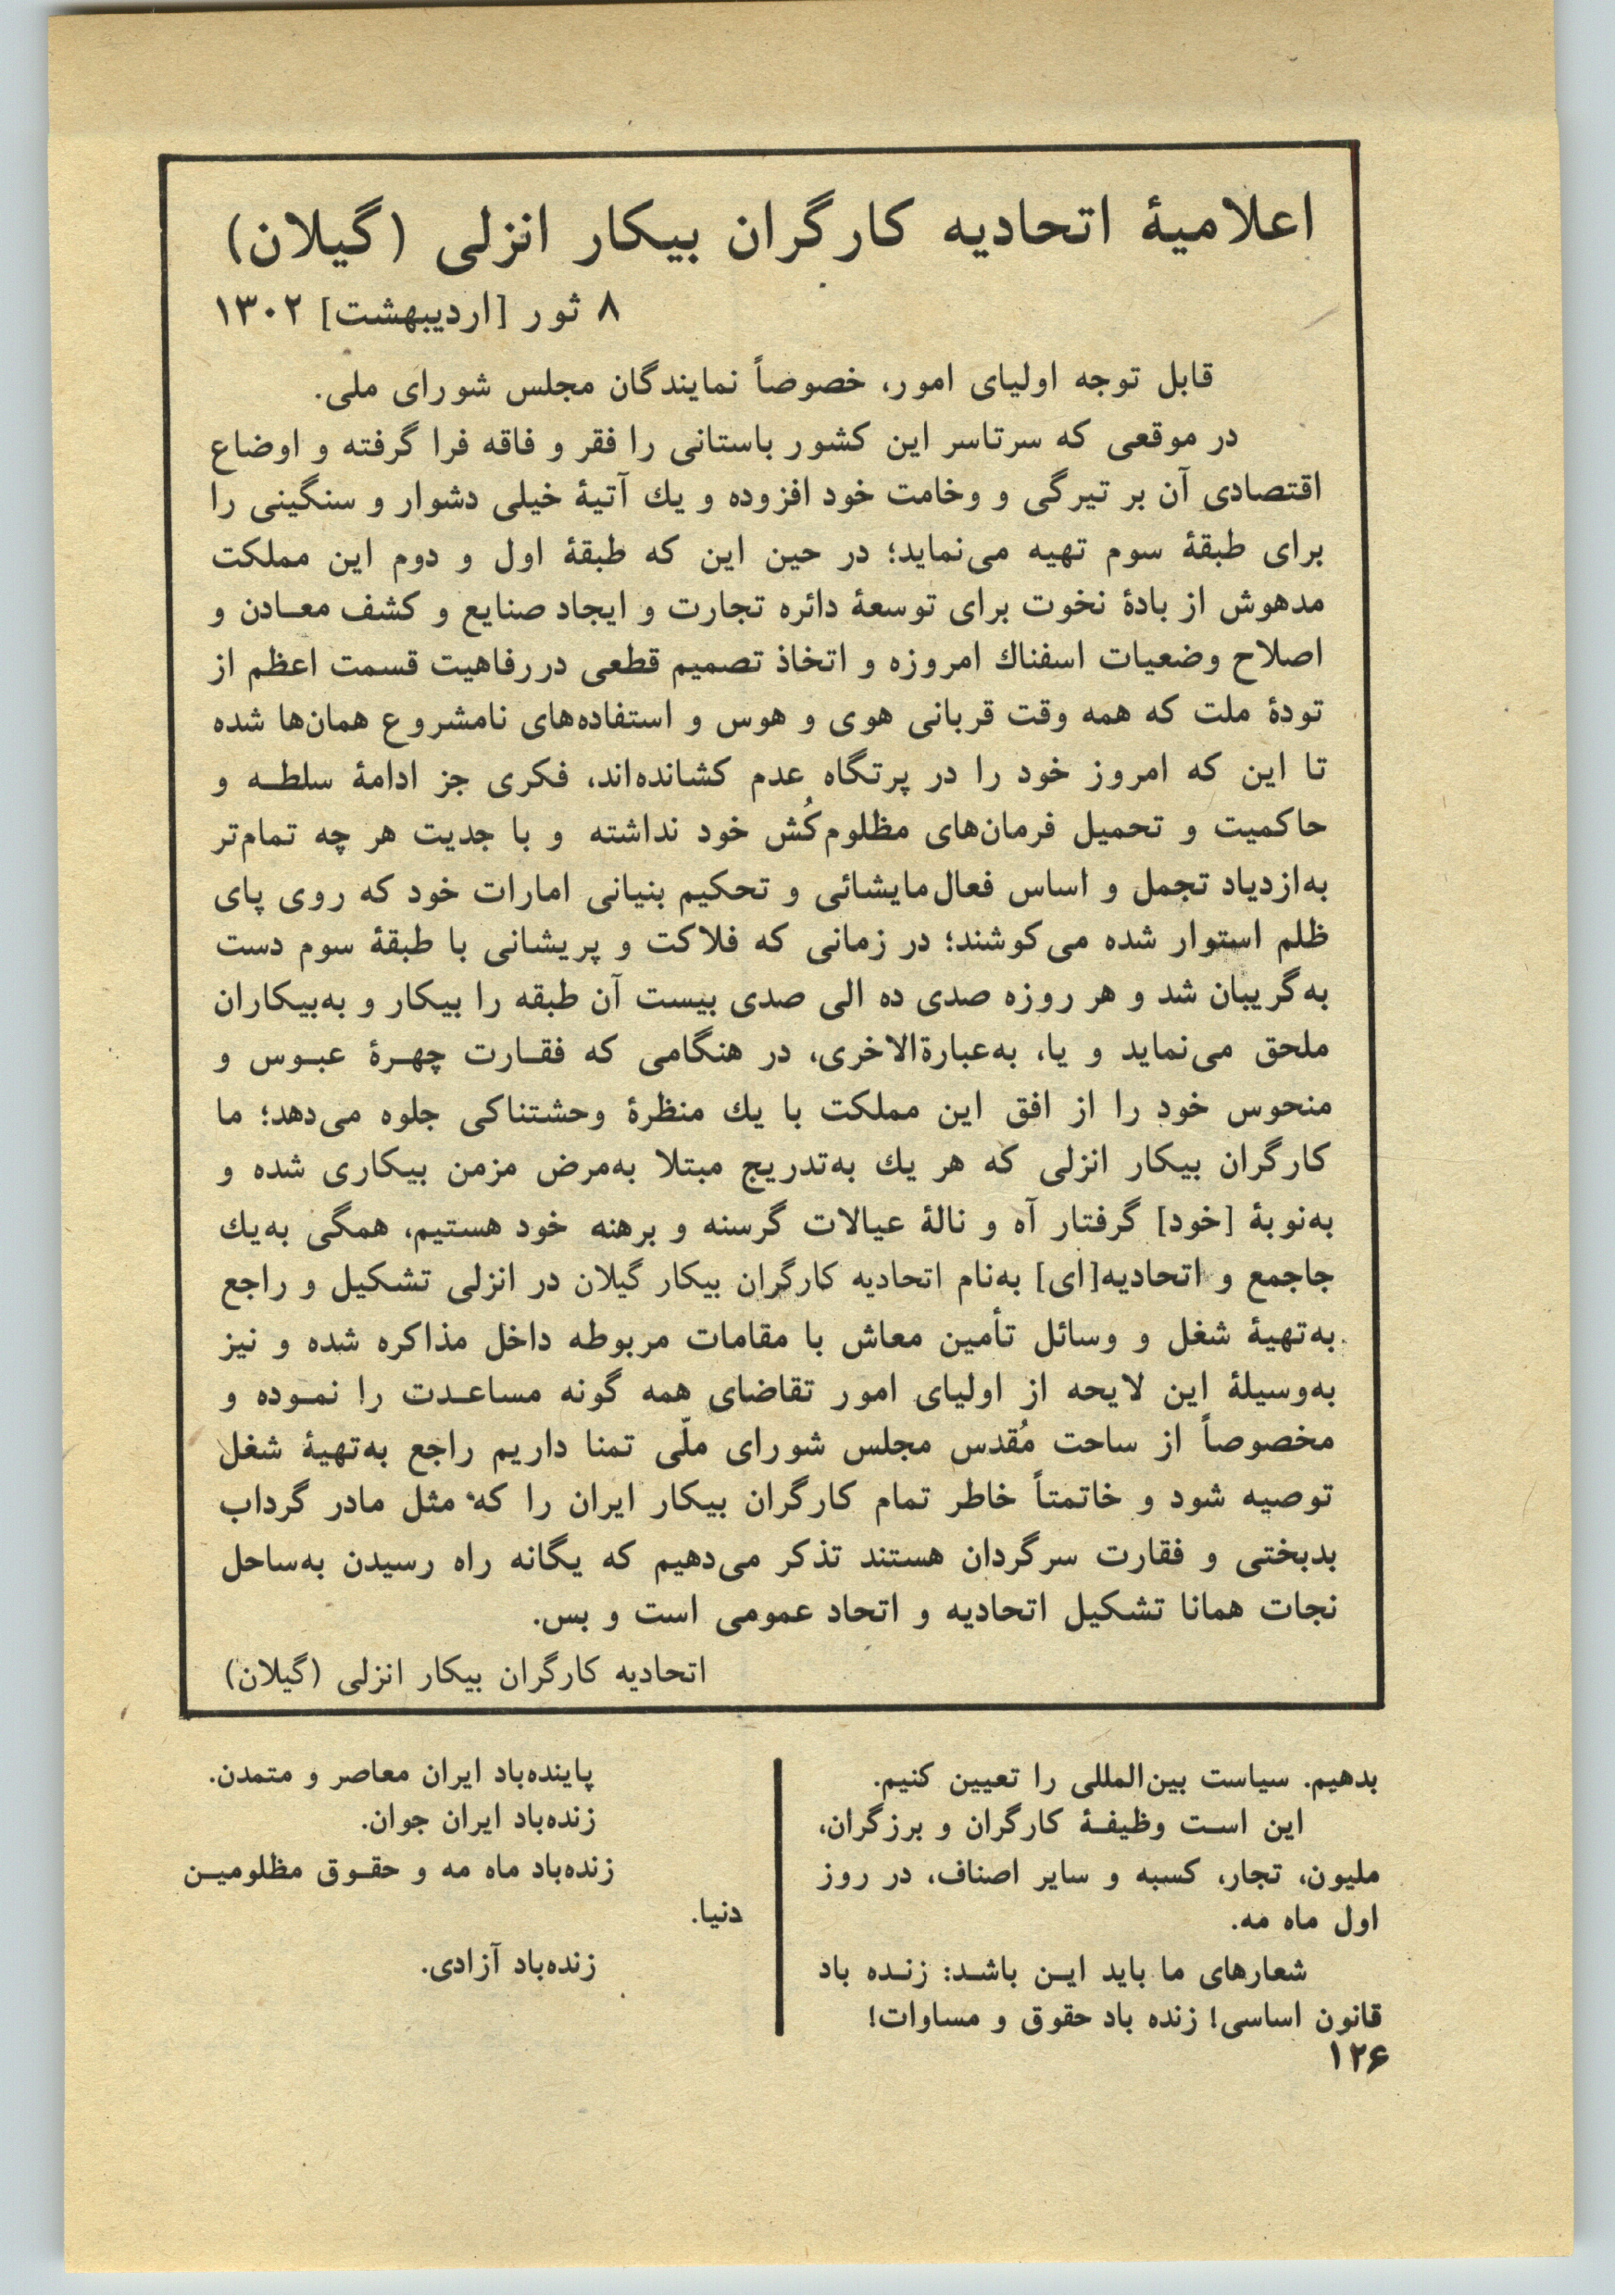 اعلامیهٔ اتحادیه کارگران بیکار انزلی (گیلان)
۸ ثور [اردیبهشت] ۱۳۰۲
قابل توجه اولیای امور، خصوصاً نمایندگان مجلس شورای ملی.
در موقعی که سرتاسر این کشور باستانی را فقر و فاقه فرا گرفته و اوضاع
اقتصادی آن بر تیرگی و وخامت خود افزوده و یك آتیهٔ خیلی دشوار و سنگینی را
برای طبقهٔ سوم تهیه می‌نماید؛ در حین این که طبقهٔ اول و دوم این مملکت
مدهوش از بادهٔ نخوت برای توسعهٔ دائره تجارت و ایجاد صنایع و کشف معـادن و
اصلاح وضعیات اسفناك امروزه و اتخاذ تصمیم قطعی در رفاهیت قسمت اعظم از
تودهٔ ملت که همه وقت قربانی هوی و هوس و استفاده‌های نامشروع همان‌ها شده
تا این که امروز خود را در پرتگاه عدم کشانده‌اند، فکری جز ادامهٔ سلطـه و
حاکمیت و تحمیل فرمان‌های مظلوم‌کُش خود نداشته و با جدیت هر چه تمام‌تر
به‌ازدیاد تجمل و اساس فعال‌مایشائی و تحکیم بنیانی امارات خود که روی پای
ظلم استوار شده می‌کوشند؛ در زمانی که فلاکت و پریشانی با طبقهٔ سوم دست
به‌گریبان شد و هر روزه صدی ده الی صدی بیست آن طبقه را بیکار و به‌بیکاران
ملحق می‌نماید و یا، به‌عبارةالاخری، در هنگامی که فقـارت چهـرهٔ عبـوس و
منحوس خود را از افق این مملکت با یك منظرهٔ وحشتناکی جلوه می‌دهد؛ ما
کارگران بیکار انزلی که هر یك به‌تدریج مبتلا به‌مرض مزمن بیکاری شده و
به‌نوبهٔ [خود] گرفتار آه و نالهٔ عیالات گرسنه و برهنه خود هستیم، همگی به‌یك
جاجمع و اتحادیه[ای] به‌نام اتحادیه کارگران بیکار گیلان در انزلی تشکیل و راجع
به‌تهیهٔ شغل و وسائل تأمین معاش با مقامات مربوطه داخل مذاکره شده و نیز
به‌وسیلهٔ این لایحه از اولیای امور تقاضای همه گونه مساعـدت را نمـوده و
مخصوصاً از ساحت مُقدس مجلس شورای ملّی تمنا داریم راجع به‌تهیهٔ شغل
توصیه شود و خاتمتاً خاطر تمام کارگران بیکار ایران را که مثل مادر گرداب
بدبختی و فقارت سرگردان هستند تذکر می‌دهیم که یگانه راه رسیدن به‌ساحل
نجات همانا تشکیل اتحادیه و اتحاد عمومی است و بس.
اتحادیه کارگران بیکار انزلی (گیلان)
بدهیم. سیاست بین‌المللی را تعیین کنیم.
این اسـت وظیفـهٔ کارگران و برزگران،
ملیون، تجار، کسبه و سایر اصناف، در روز
اول ماه مه.
شعارهای ما باید ایـن باشـد: زنـده باد
قانون اساسی! زنده باد حقوق و مساوات!
پاینده‌باد ایران معاصر و متمدن.
زنده‌باد ایران جوان.
زنده‌باد ماه مه و حقـوق مظلومیـن
دنیا.
زنده‌باد آزادی.
۱۲۶